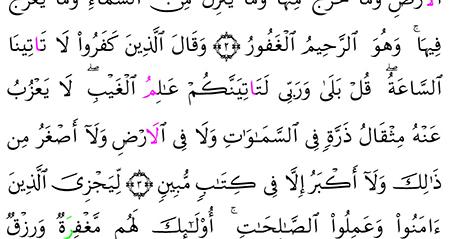 الَارْضِ وَمَا يَخْرُجُ مِنْهَا وَمَا يَنزِلُ مِنَ اَ۬لسَّمَآءِ وَمَا يَعْرُجُ
فِيهَاۖ وَهُوَ اَ۬لرَّحِيمُ اُ۬لْغَفُورُۖ ۝٢ وَقَالَ اَ۬لذِينَ كَفَرُواْ لَا تَاتِينَا
اَ۬لسَّاعَةُۖ قُلْ بَلَىٰ وَرَبِّي لَتَاتِيَنَّكُمْ عَٰلِمُ اُ۬لْغَيْبِۖ لَا يَعْزُبُ
عَنْهُ مِثْقَالُ ذَرَّةٖ فِي اِ۬لسَّمَٰوَٰتِ وَلَا فِي اِ۬لَارْضِ وَلَآ أَصْغَرُ مِن
ذَٰلِكَ وَلَآ أَكْبَرُ إِلَّا فِي كِتَٰبٖ مُّبِينٖ ۝٣ لِّيَجْزِيَ اَ۬لذِينَ
ءَامَنُواْ وَعَمِلُواْ اُ۬لصَّٰلِحَٰتِۖ أُوْلَٰٓئِكَ لَهُم مَّغْفِرَةٞ وَرِزْقٞ